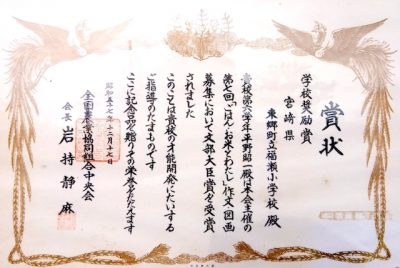 賞状
学校奨励賞
宮崎県
東郷町立福瀬小学校 殿
貴校第六学年平野昭一殿は本会主催の
第七回「ごはん・お米とわたし」作文図画
募集において文部大臣賞を受賞
されました
このことは貴校の才能開発にたいする
ご指導のたまものです
ここに記念品を贈りその栄誉をたたえます
昭和五十七年十二月十七日
全国農業協同組合中央会
会長 岩持静麻